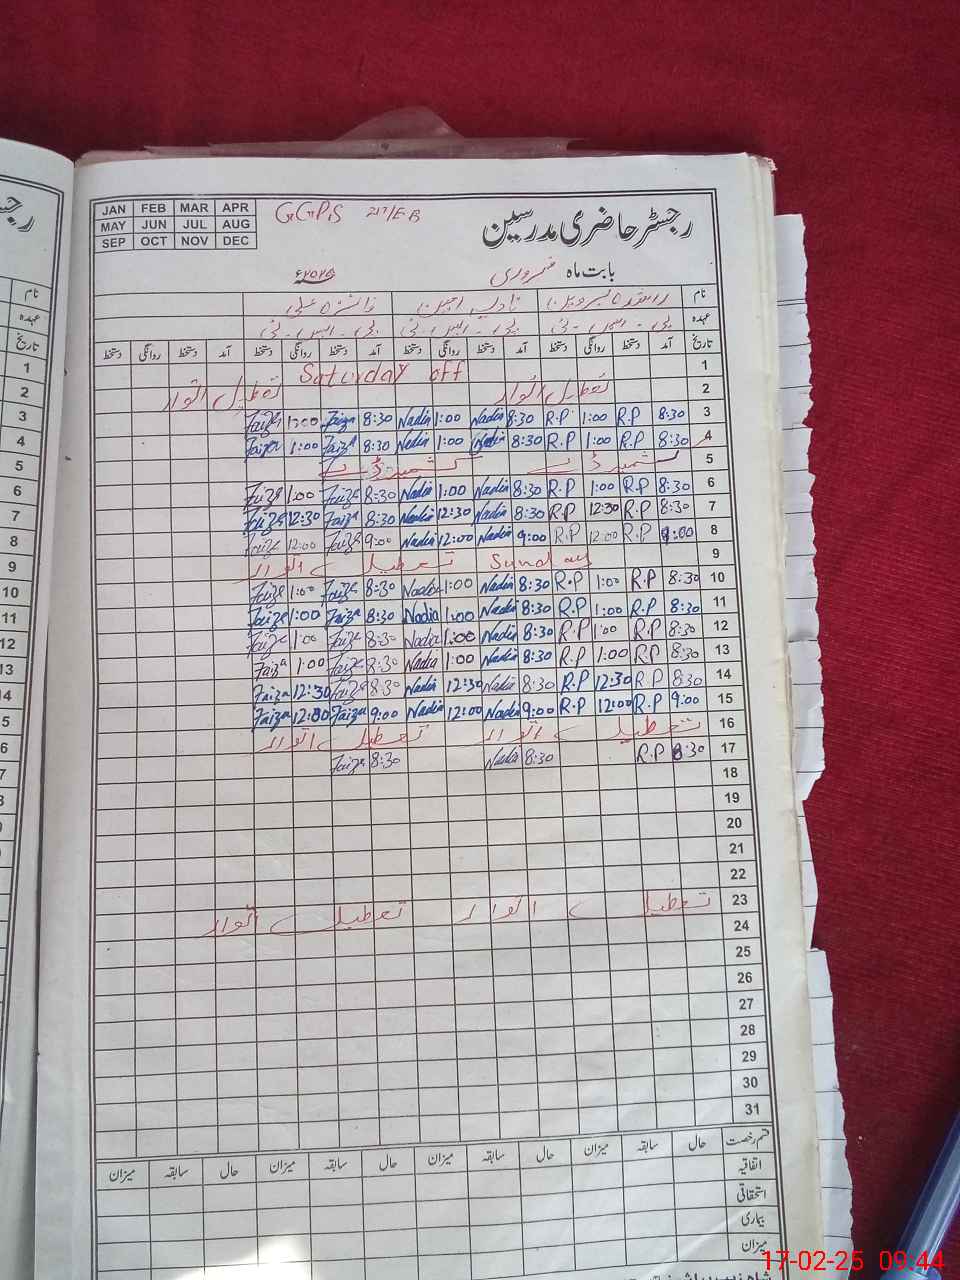 JAN FEB MAR APR
MAY JUN JUL AUG
SEP OCT NOV DEC
GGPS 217/EB
رجسٹر حاضری مدرسین
بابت ماہ فروری ۲۰۲۵ء
نام پروین نادیہ امین فائزہ علی
عہدہ پی۔ایس۔ٹی پی۔ایس۔ٹی پی۔ایس۔ٹی
تاریخ آمد دستخط روانگی دستخط آمد دستخط روانگی دستخط آمد دستخط روانگی دستخط آمد دستخط روانگی دستخط
1 Saturday off
2 تعطیل اتوار تعطیل اتوار
3 8:30 R.P 1:00 R.P 8:30 Nadia 1:00 Nadia 8:30 Faiza 1:00 Faiza
4 8:30 R.P 1:00 R.P 8:30 Nadia 1:00 Nadia 8:30 Faiza 1:00 Faiza
5 کشمیر ڈے کشمیر ڈے
6 8:30 R.P 1:00 R.P 8:30 Nadia 1:00 Nadia 8:30 Faiza 1:00 Faiza
7 8:30 R.P 12:30 R.P 8:30 Nadia 12:30 Nadia 8:30 Faiza 12:30 Faiza
8 9:00 R.P 12:00 R.P 9:00 Nadia 12:00 Nadia 9:00 Faiza 12:00 Faiza
9 Sunday تعطیل اتوار
10 8:30 R.P 1:00 R.P 8:30 Nadia 1:00 Nadia 8:30 Faiza 1:00 Faiza
11 8:30 R.P 1:00 R.P 8:30 Nadia 1:00 Nadia 8:30 Faiza 1:00 Faiza
12 8:30 R.P 1:00 R.P 8:30 Nadia 1:00 Nadia 8:30 Faiza 1:00 Faiza
13 8:30 R.P 1:00 R.P 8:30 Nadia 1:00 Nadia 8:30 Faiza 1:00 Faiza
14 8:30 R.P 12:30 R.P 8:30 Nadia 12:30 Nadia 8:30 Faiza 12:30 Faiza
15 9:00 R.P 12:00 R.P 9:00 Nadia 12:00 Nadia 9:00 Faiza 12:00 Faiza
16 تعطیل اتوار تعطیل اتوار
17 8:30 R.P 8:30 Nadia 8:30 Faiza
18
19
20
21
22
23 تعطیل اتوار تعطیل اتوار
24
25
26
27
28
29
30
31
قسم رخصت حال سابقہ میزان حال سابقہ میزان حال سابقہ میزان حال سابقہ میزان
اتفاقیہ
استحقاقی
بیماری
میزان
17-02-25 09:44